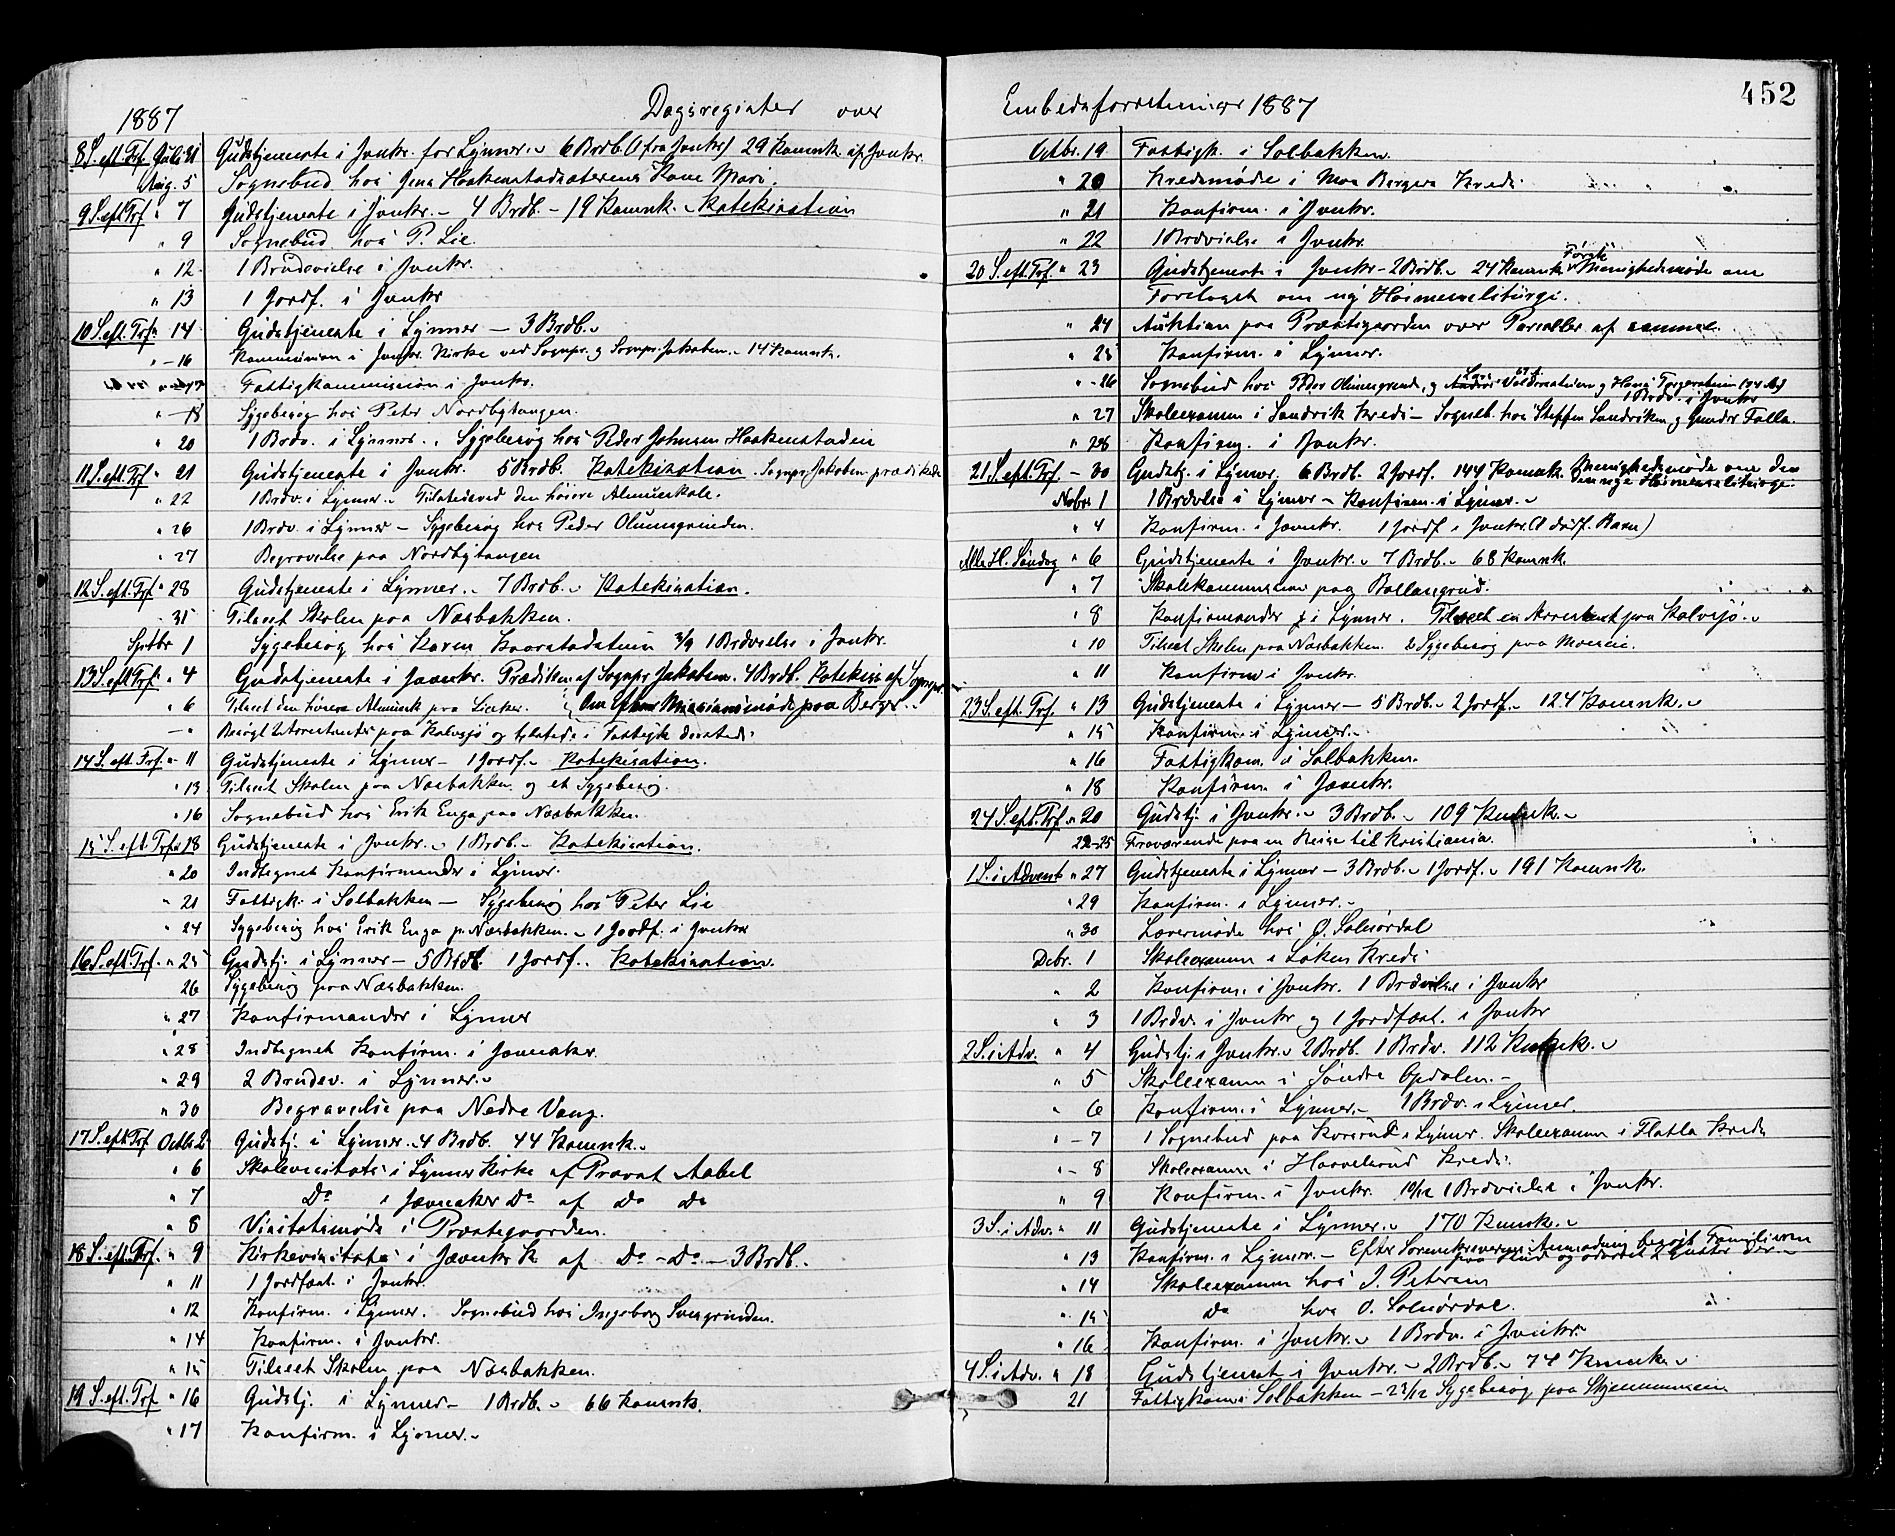 1887 Dagsregister over
8 S. eft. Trf. Juli 31 Gudstjeneste i Jevnkr. for Lynner. 6 Brdb. (1 fra Jevnkr) 29 Komnk. af Jevnkr.
Aug. 5 Sognebud hos Jens Haakenstadsæterens Kone Mari.
9 S. eft. Trf. " 7 Gudstjeneste i Jvnkr. - 4 Brdb. - 19 Komnk. - Katekisation
" 9 Sognebud hos P. Lie.
" 12 1 Brudevielse i Jvnkr.
" 13 1 Jordf. i Jvnkr
10 S. eft. Trf. " 14 Gudstjeneste i Lynner - 3 Brdb.
" - 16 Kommunion i Jvnkr. Kirke ved Sognpr. og Sognpr. Jakobsen. - 14 Komnk.
17 Fattigkommission i Jvnkr.
" - 18 Sygebesøg hos Peter Nordbytangen.
" 20 1 Brdv. i Lynner. Sygebesøg hos Peder Johnsen Haakenstadeie
11 S. eft. Trf. " 21 Gudstjeneste i Jvnkr. 5 Brdb. Katekisation. Sognpr. Jakobsen prædikede
" 22 1 Brdv. i Lynner. - Tilstedeved den høiere Almueskole.
" 26 1 Brdv. i Lynner - Sygebesøg hos Peder Olumsgrinden.
" 27 Begravelse paa Nordbytangen
12 S. eft. Trf. " 28 Gudstjeneste i Lynner. - 7 Brdb. - Katekisation.
31 Tilseet Skolen paa Næsbakken.
Septbr 1 Sygebesøg hos Karen Kaarstadstuen 3/9 1 Brdvielse i Jvnkr.
13 S. eft. Trf. " 4 Gudstjeneste i Jævnkr. Prædiken af Sognpr. Jakobsen. 4 Brdb. Katekis. af Sognpr.
" 6 Tilseet den høiere Almuesk. paa Lieker. Om Efterm. Missionsmøde paa Berger.
- " Besøgt Arrestanter paa Kalvsjø og tilsted i Fattigk. dersteds.
14 S. eft. Trf. " 11 Gudstjeneste i Lynner - 1 Jordf. - Katekisation.
" 13 Tilseet Skolen paa Næsbakken og et Sygebesøg.
" 16 Sognebud hos Erik Enga paa Næsbakken.
15 S. eft. Trf. " 18 Gudstjeneste i Jvnkr. - 1 Brdb. - Katekisation.
" 20 Indtegnet Konfirmander i Lynner.
" 21 Fattigk. i Solbakken - Sygebesøg hos Peter Lie
" 24 Sygebesøg hos Erik Enga p. Næsbakken. - 1 Jordf. i Jvnkr
16 S. eft. Trf. " 25 Gudstj. i Lynner - 5 Brdb. 1 Jordf. Katekisation.
26 Sygebesøg paa Næsbakken.
" 27 Konfirmander i Lynner
" 28 Indtegnet Konfirm. i Jævnaker.
" 29 2 Brudev. i Lynner.
" 30 Begravelse paa Nedre Vang.
17 S. eft. Trf. Octbr. 2 Gudstj. i Lynner. 4 Brdb. 44 Komnk.
" 6 Skolevisitats i Lynner Kirke af Provst Aabel
" 7 Do i Jævnaker Do af do do
" 8 Visitatsmøde i Præstegaarden.
18 S. eft. Trf. " 9 Kirkevisitats i Jævnkr K. af Do - Do - 3 Brdb.
" 11 1 Jordfæst. i Jvnkr.
" 12 Konfirm. i Lynner. Sognebud hos Ingeborg Svensgrinden.
" 14 Konfirm. i Jvnkr.
" 15 Tilseet Skolen paa Næsbakken.
19 S. eft. Trf. " 16 Gudstj. i Lynner - 1 Brdb. - 66 Komnk.
" 17 Konfirm. i Lynner.
452
Embedsforretninger 1887
Octbr. 19 Fattigk. i Solbakken.
" 20 Kredsmøde i Moe Bergers Kreds.
" 21 Konfirm. i Jvnkr.
" 22 1 Brdvielse i Jvnkr.
20 S. eft. Trf. " 23 Gudstjeneste i Jvnkr - 2 Brdb. - 24 Komnk. Første Menighedsmøde om
Forslaget om ny Høimesseliturgi.
" 24 Auktion paa Præstegaarden over Parceller af samme.
" 25 Konfirm. i Lynner.
" - 26 Sognebud hos Peder Olumsgrind, og
1 Brdv. i Jvnkr
" 27 Skoleexamen i Sandvik Kreds - Sogneb. hos Steffen Sandviken og Gunder Falla.
" 28 Konfirm. i Jvnkr.
21 S. eft. Trf. - 30 Gudstj. i Lynner. 6 Brdb. 2 Jordf. 144 Komnk. Menighedsmøde om den
nye Høimesseliturgi.
Novbr 1 1 Brdvlse i Lynner - Konfirm. i Lynner.
" 4 Konfirm. i Jævnkr. 1 Jordf. i Jvnkr. (1 dødf. Barn)
Alle H. Søndag " 6 Gudstjeneste i Jvnkr. - 7 Brdb. - 68 Komnk.
" 7 Skolekommission paa Ballangrud.
" 8 Konfirmander i Lynner. Tilseet en Arrestant paa Kalvsjø.
" 10 Tilseet Skolen paa Næsbakken. 2 Sygebesøg paa Moeneie.
" 11 Konfirm i Jvnkr.
23 S. eft. Trf. " 13 Gudstjeneste i Lynner - 5 Brdb. - 2 Jordf. - 124 Komnk.
" 15 Konfirm. i Lynner.
" 16 Fattigkom. i Solbakken.
" 18 Konfirm. i Jævnkr.
24 S. eft. Trf. " 20 Gudstj. i Jvnkr. - 3 Brdb. - 109 Komnk.
22-25 Fraværende paa en Reise til Kristiania.
1 S. i Advent " 27 Gudstjeneste i Lynner - 3 Brdb. - 1 Jordf. - 191 Komnk.
" 29 Konfirm. i Lynner.
" 30 Lærermøde hos O. Solsørdal
Debr. 1 Skoleexamen i Løken Kreds
" 2 Konfirm. i Jvnkr. 1 Brdvielse i Jvnkr
" 3 1 Brdv. i Jvnkr og 1 Jordfæst. i Jvnkr
2 S. i Adv. " 4 Gudstj. i Jvnkr. - 2 Brdb. 1 Brdv. 112 Komnk.
" 5 Skoleexamen i Søndre Opdalen.
" 6 Konfirm. i Lynner. - 1 Brdv. i Lynner.
" - 7 1 Sognebud paa Korsrud i Lynner. Skoleexamen i Flatla Kreds
" - 8 Skoleexamen i Haavelsrud Kreds.
" 9 Konfirm. i Jvnkr. 10/12 1 Brdvielse i Jvnkr.
3 S. i Adv. " 11 Gudstjeneste i Lynner. - 170 Komnk.
" 13 Konfirm. i Lynner. - Efter Anmodning besøgt Familien
" 14 Skoleexamen hos J. Petersen
" 15 Do hos O. Solsørdal.
" 16 Konfirm. i Jvnkr. - 1 Brdv. i Jvnkr.
4 S. i Adv. " 18 Gudstjeneste i Jvnkr. - 2 Brdb. - 74 Komnk.
21 Fattigkom i Solbakken - 23/12 Sygebesøg paa